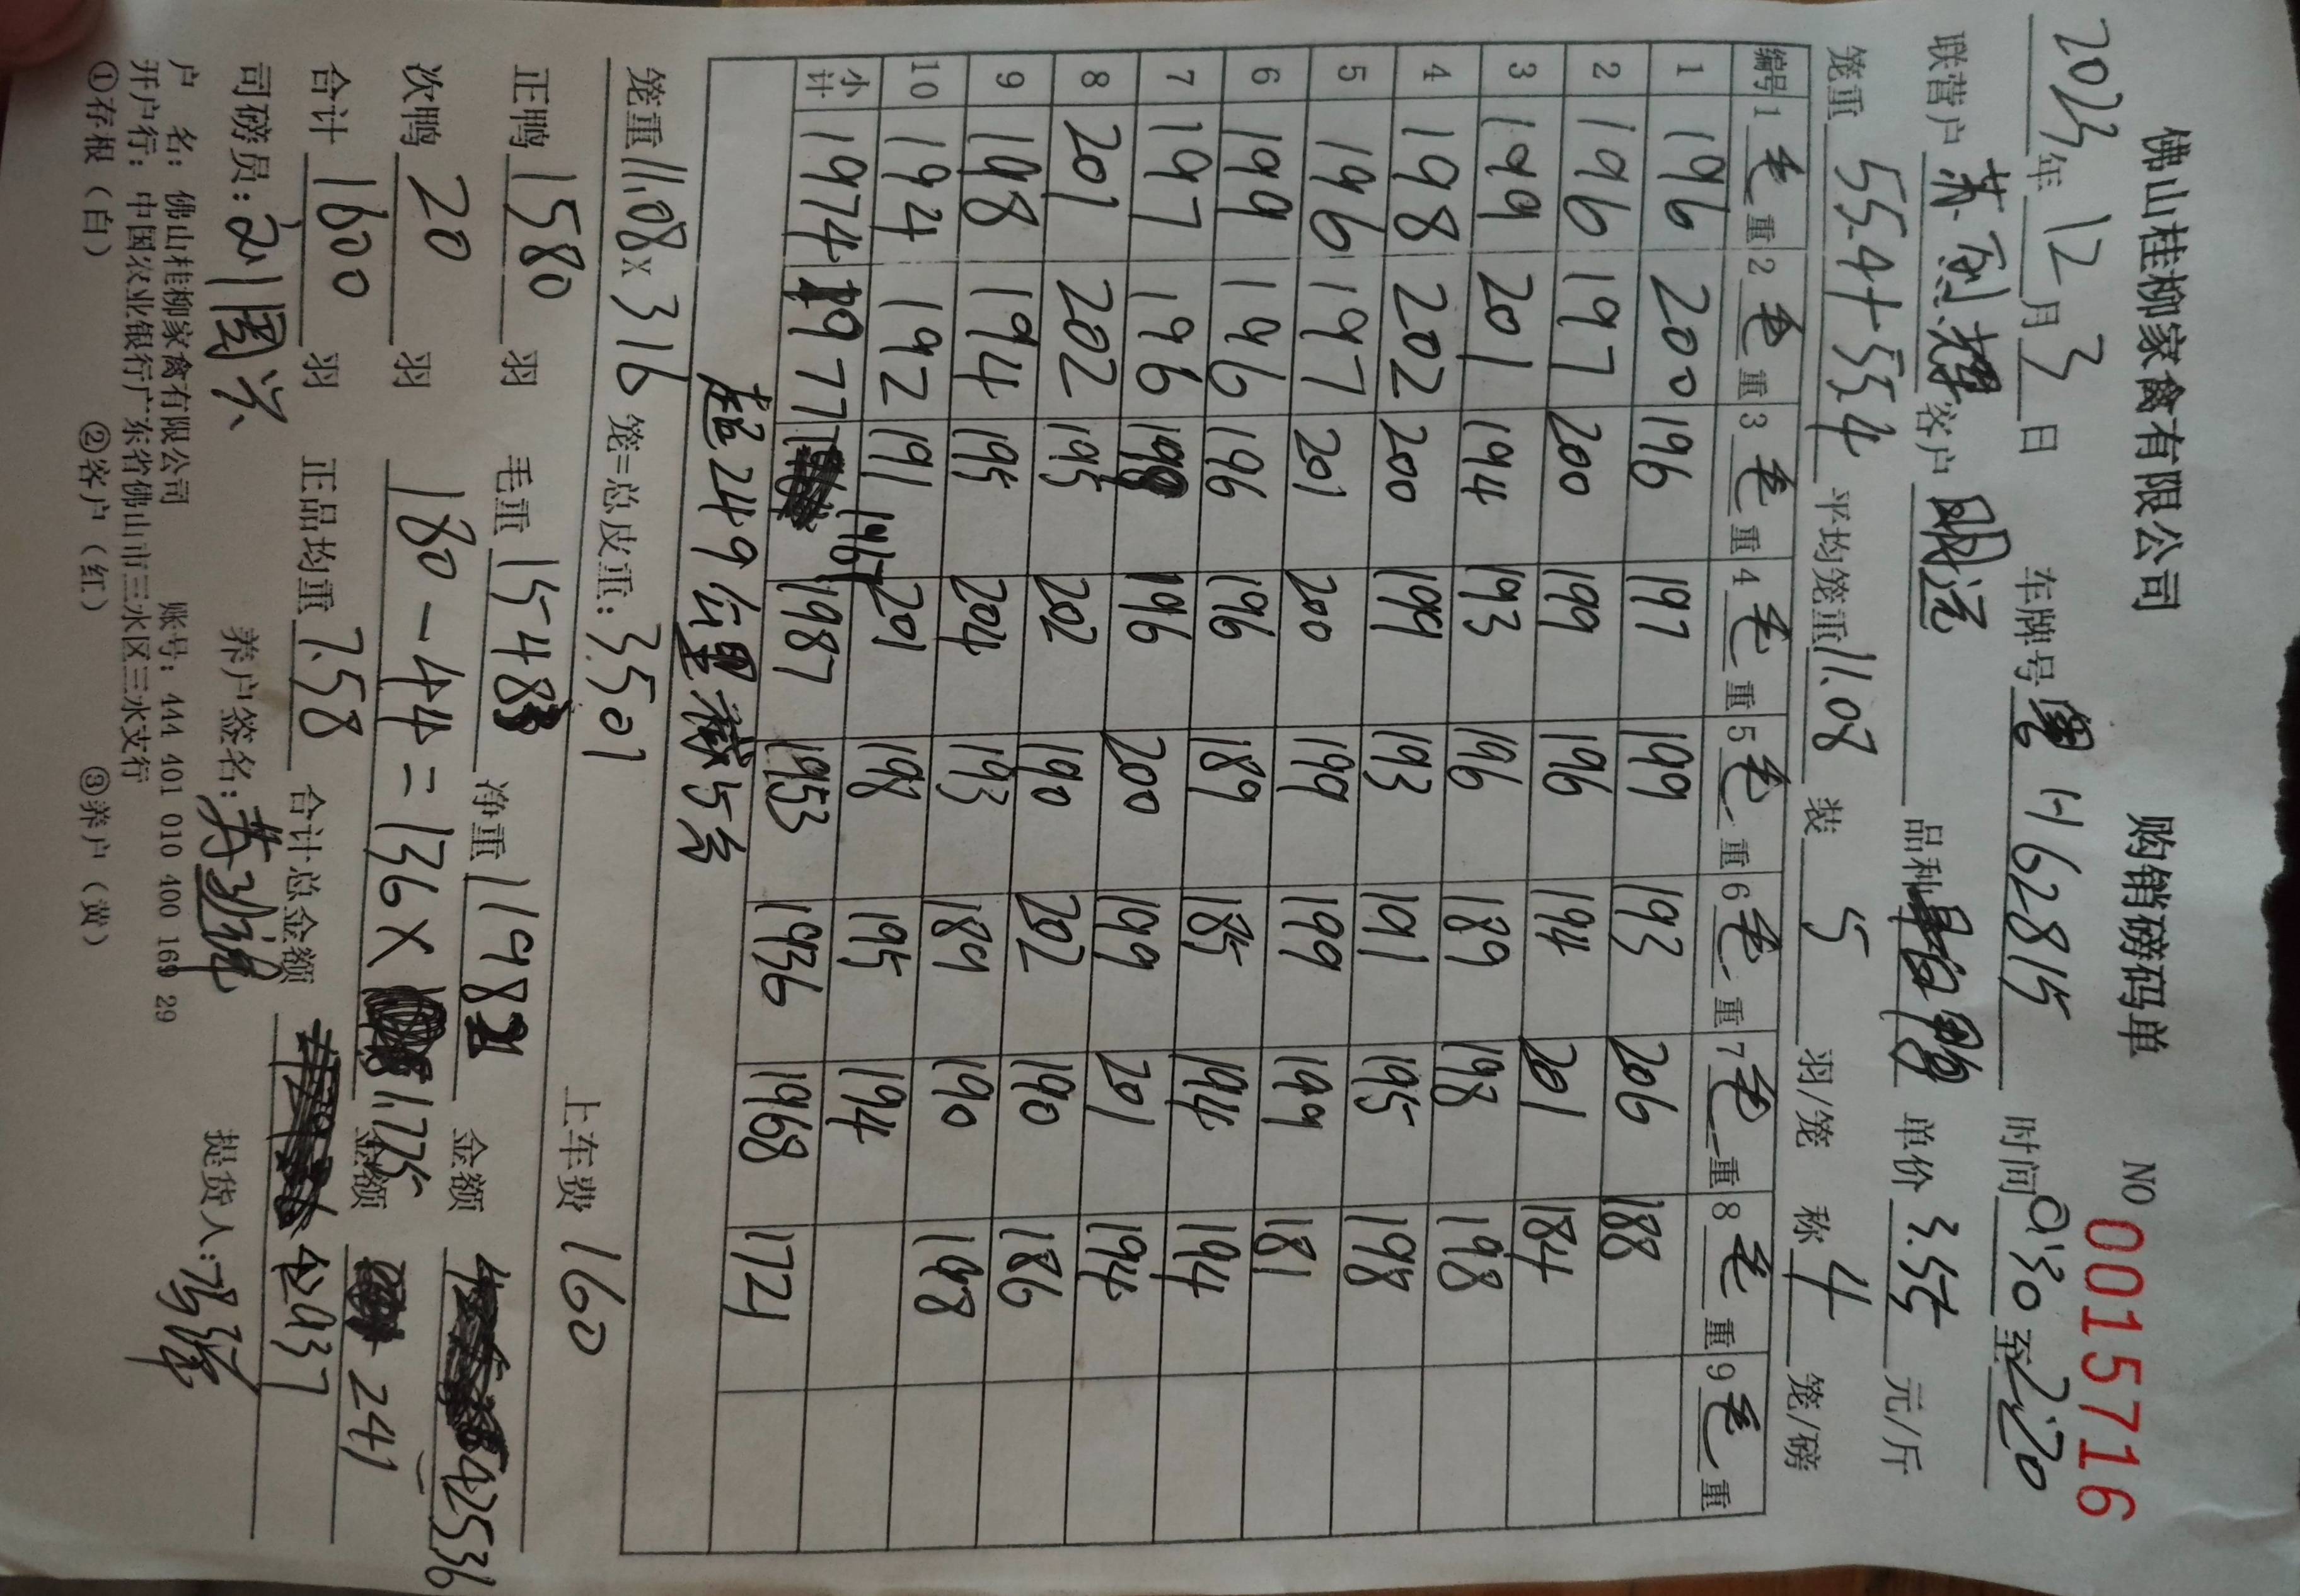 佛山桂柳家禽有限公司 购销磅码单 NO 0015716
2023年12月3日 车牌号粤H62815 时间0:30至2:20
联营户 客户 品种 单价3.55元/斤
笼重55.4+55.4 平均笼重11.08 装5羽/笼 称4笼/磅
编号 1毛重 2毛重 3毛重 4毛重 5毛重 6毛重 7毛重 8毛重 9毛重
1 196 200 196 197 199 193 206 188
2 196 197 200 199 196 194 201 184
3 199 201 194 193 196 189 198 198
4 198 202 200 199 193 191 195 198
5 196 197 201 200 199 199 199 181
6 199 196 196 196 189 185 194 194
7 197 196 198 196 200 199 201 194
8 201 202 195 202 190 202 190 186
9 198 194 195 204 193 189 190 198
10 194 192 191 201 198 195 194
小计 1974 1977 1967 1987 1953 1936 1968 1721
超249公里减5分
笼重11.08×316笼=总皮重:3501 上车费160
正鸭1580羽 毛重15483 净重11982 金额42536
次鸭20羽 180-44=136×1.775 金额241
合计1600羽 正品均重7.58 合计总金额 42937
司磅员:刘国兴 养户签名: 提货人:
户 名:佛山桂柳家禽有限公司 账号:444 401 010 400 169 29
开户行:中国农业银行广东省佛山市三水区三水支行
①存根(白) ②客户(红) ③养户(黄)